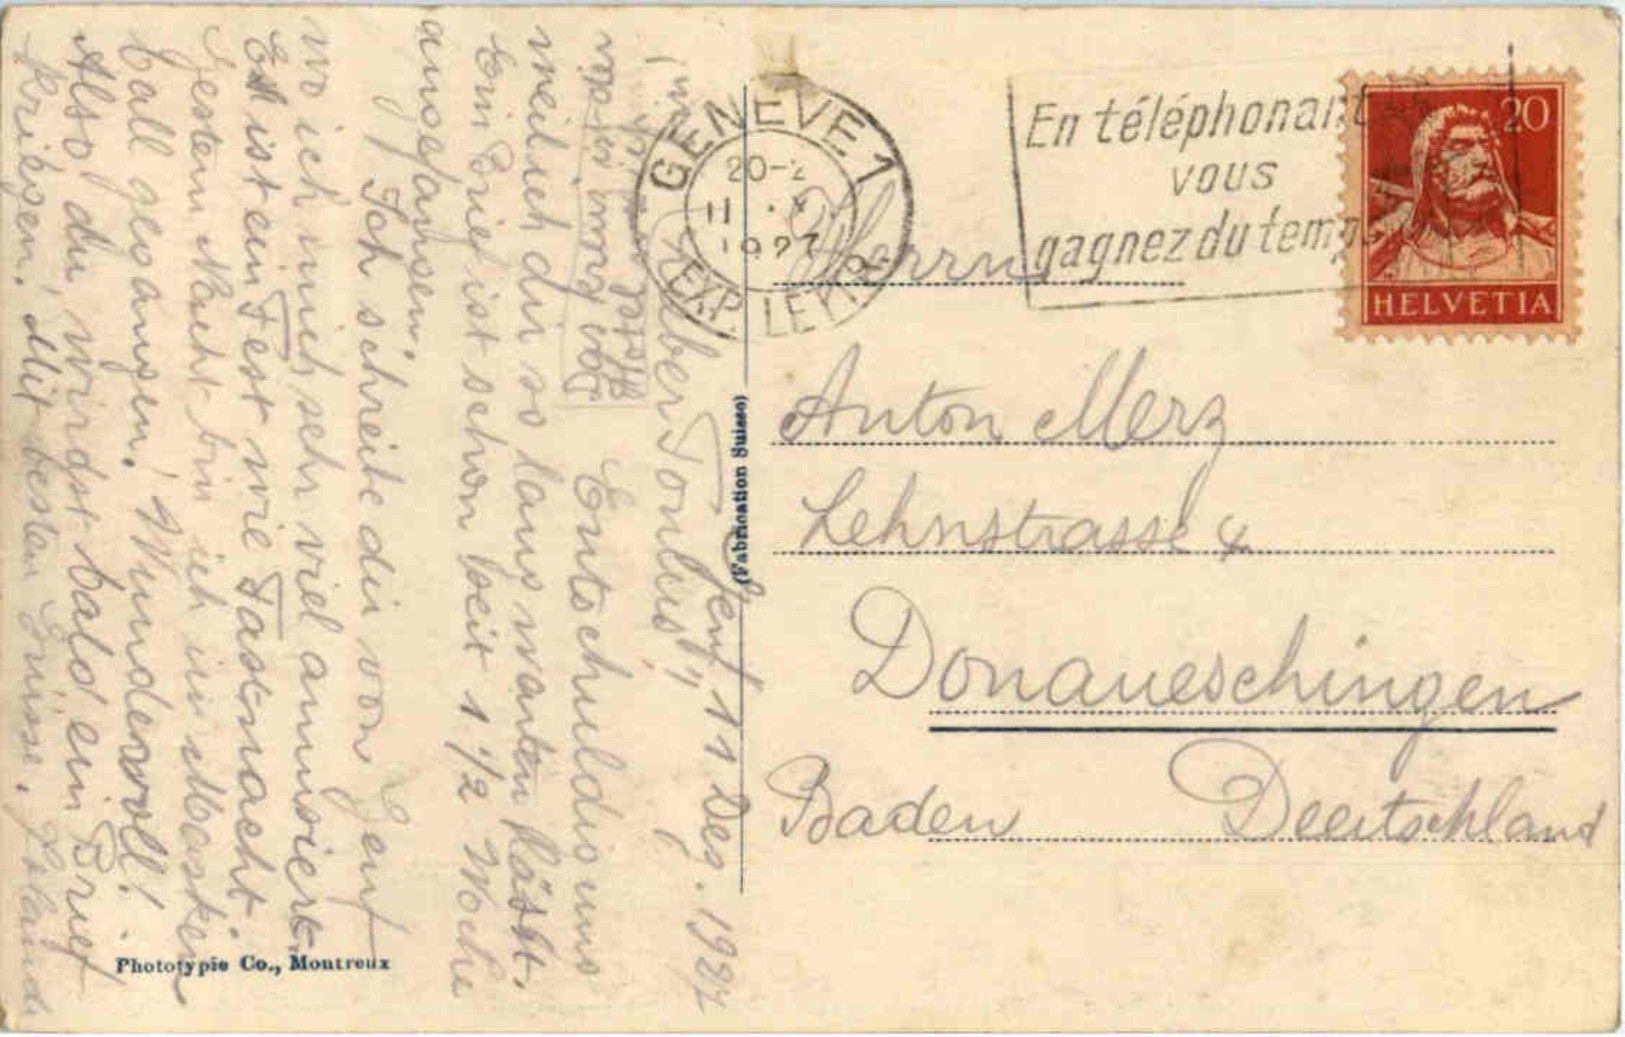 Genf 11 Dez. 1927
Lieber Tonlis!,
Entschuldigung
weil ich dir so lang warten lässt.
Ein Brief ist schon seit 1 1/2 Woche
angefangen.
Ich schreibe dir von Genf
wo ich mich sehr viel amusiert.
Es ist ein Fest wie Fastnacht.
Gestern Nacht bin ich im Masken
ball gegangen. Wundervoll!
Also du, wirdst bald ein Brief
kriegen. Mit besten Grüsse.
Phototypie Co., Montreux
(Fabrication Suisse)
GENÈVE 1
20-2
11
1927
EXP. LETTR.
En téléphonant
vous
gagnez du temps
20
HELVETIA
Herrn
Anton Merz
Lehnstrasse 4
Donaueschingen
Baden Deutschland